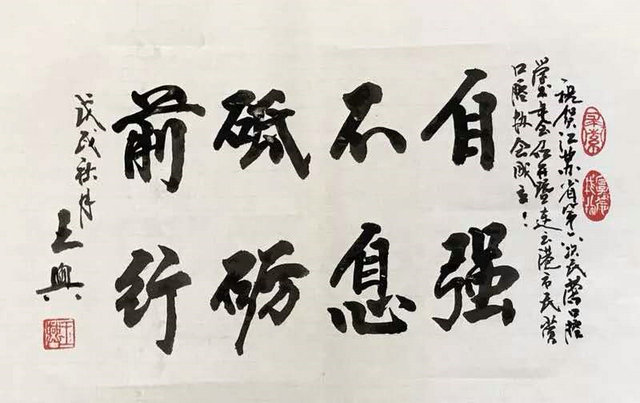 祝贺江苏省第六次民营口腔
学术会召开暨连云港市民营
口腔协会成立！
自强
不息
砥砺
前行
戊戌秋月
王興